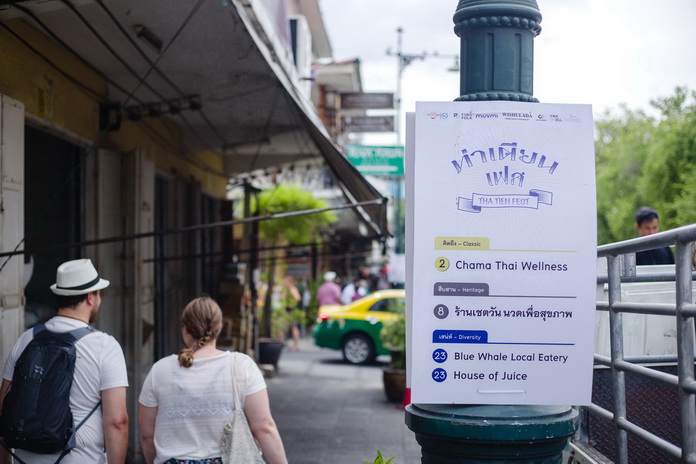 muvmi
ท่าเตียน
เฟส
THA TIEN FEST
คิดถึง – Classic
2 Chama Thai Wellness
สืบสาน – Heritage
8 ร้านเชตวัน นวดเพื่อสุขภาพ
เสน่ห์ – Diversity
23 Blue Whale Local Eatery
23 House of Juice